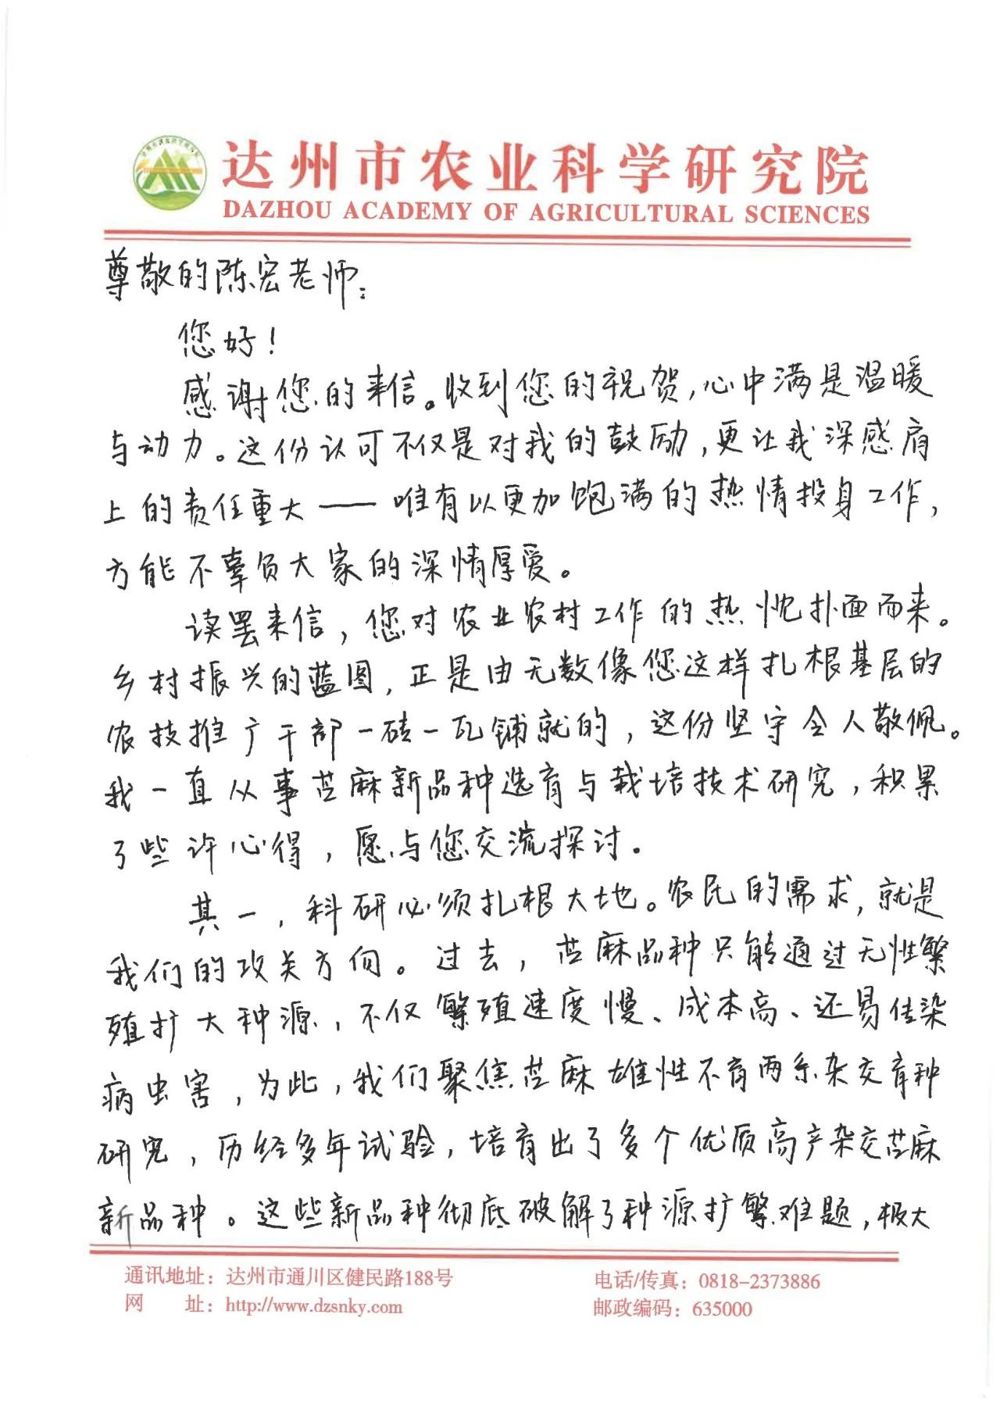 达州市农业科学研究院
DAZHOU ACADEMY OF AGRICULTURAL SCIENCES
尊敬的陈宏老师：
您好！
感谢您的来信。收到您的祝贺，心中满是温暖
与动力。这份认可不仅是对我的鼓励，更让我深感肩
上的责任重大——唯有以更加饱满的热情投身工作，
方能不辜负大家的深情厚爱。
读罢来信，您对农业农村工作的热忱扑面而来。
乡村振兴的蓝图，正是由无数像您这样扎根基层的
农技推广干部一砖一瓦铺就的，这份坚守令人敬佩。
我一直从事苎麻新品种选育与栽培技术研究，积累
了些许心得，愿与您交流探讨。
其一，科研必须扎根大地。农民的需求，就是
我们的攻关方向。过去，苎麻品种只能通过无性繁
殖扩大种源，不仅繁殖速度慢、成本高、还易传染
病虫害，为此，我们聚焦苎麻雄性不育两系杂交育种
研究，历经多年试验，培育出了多个优质高产杂交苎麻
新品种。这些新品种彻底破解了种源扩繁难题，极大
通讯地址：达州市通川区健民路188号
电话/传真：0818-2373886
网 址：http://www.dzsnky.com
邮政编码：635000